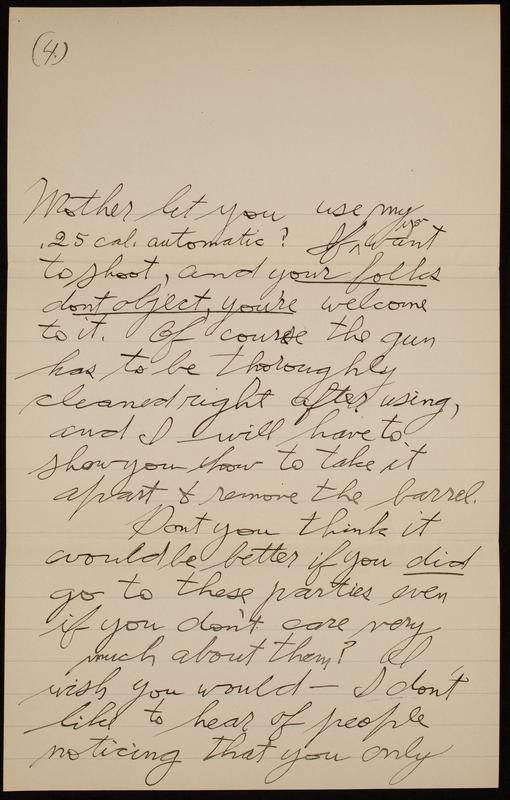 (4.)
Mother let you use my
.25 cal. automatic? If you want
to shoot, and your folks
dont object, you're welcome
to it. Of course the gun
has to be thoroughly
cleaned right after using,
and I will have to
show you how to take it
apart & remove the barrel.
Dont you think it
would be better if you did
go to these parties even
if you don't care very
much about them? I
wish you would — I don't
like to hear of people
noticing that you only